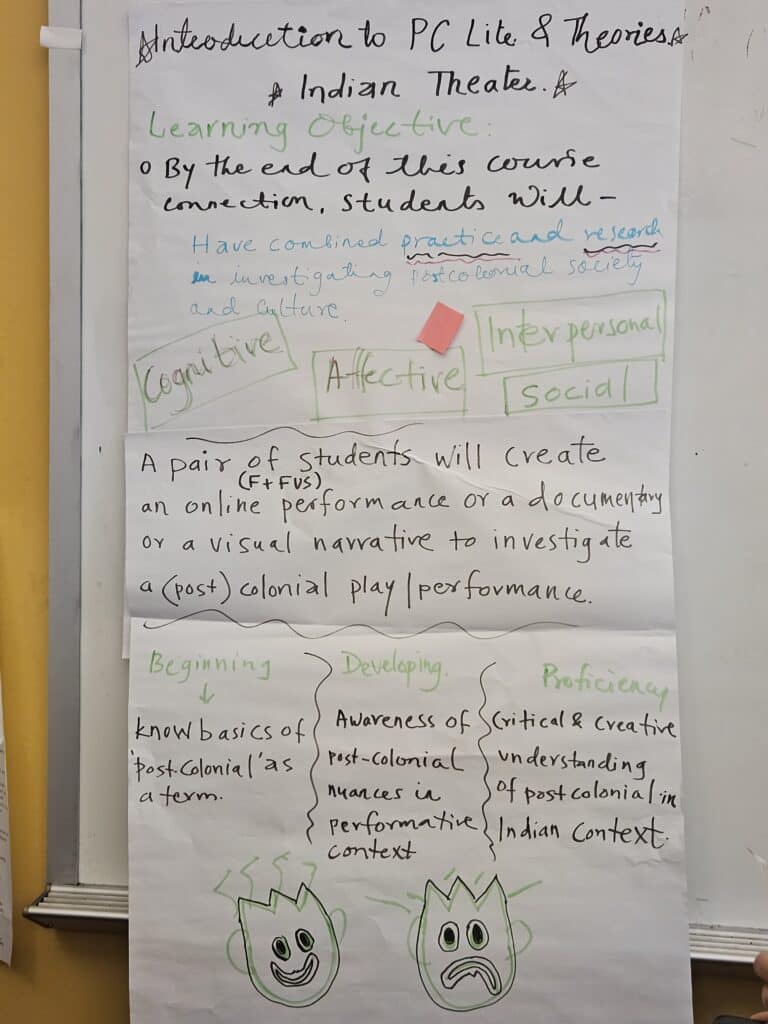 Introduction to PC Lite & Theories
Indian Theater.
Learning Objective:
By the end of this course
connection, students will –
Have combined practice and research
in investigating postcolonial society
and culture.
Cognitive
Affective
Interpersonal
Social
A pair of students will create
(F + FVS)
an online performance or a documentary
or a visual narrative to investigate
a (post) colonial play/performance.
Beginning
↓
know basics of
'post-colonial' as
a term.
Developing.
Awareness of
post-colonial
nuances in
performative
context
Proficiency
Critical & creative
understanding
of postcolonial in
Indian Context.